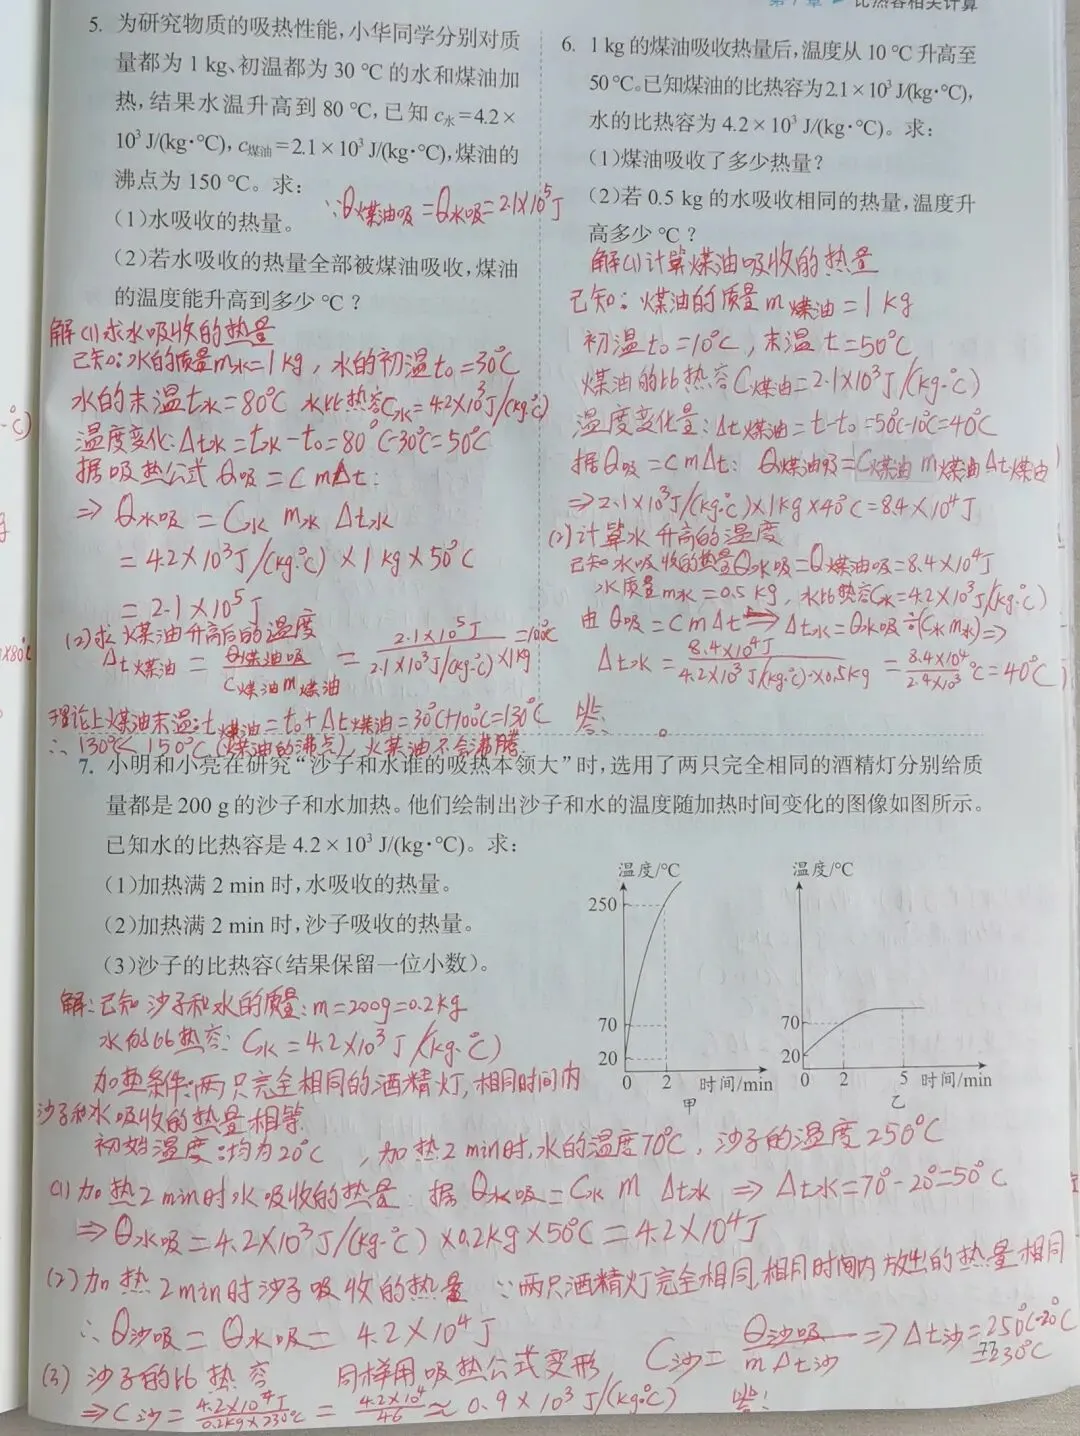 比热容相关计算
5. 为研究物质的吸热性能,小华同学分别对质
量都为 1 kg、初温都为 30 ℃ 的水和煤油加
热,结果水温升高到 80 ℃,已知 c水=4.2×
10³ J/(kg·℃), c煤油=2.1×10³ J/(kg·℃),煤油的
沸点为 150 ℃。求:
(1)水吸收的热量。
∵Q煤油吸=Q水吸=2.1×10⁵J
(2)若水吸收的热量全部被煤油吸收,煤油
的温度能升高到多少 ℃?
解(1)求水吸收的热量
已知:水的质量m水=1kg,水的初温t₀=30℃
水的末温t水=80℃ 水比热容C水=4.2×10³J/(kg·℃)
温度变化:Δt水=t水-t₀=80℃-30℃=50℃
据吸热公式Q吸=CmΔt:
⇒ Q水吸=C水 m水 Δt水
=4.2×10³J/(kg·℃)×1kg×50℃
=2.1×10⁵J
(2)求煤油升高后的温度
Δt煤油=Q煤油吸/C煤油m煤油=2.1×10⁵J/2.1×10³J/(kg·℃)×1kg=100℃
理论上煤油末温:t煤油=t₀+Δt煤油=30℃+100℃=130℃
∴130℃<150℃(煤油的沸点),煤油不会沸腾
6. 1 kg 的煤油吸收热量后,温度从 10 ℃ 升高至
50 ℃。已知煤油的比热容为 2.1×10³ J/(kg·℃),
水的比热容为 4.2×10³ J/(kg·℃)。求:
(1)煤油吸收了多少热量?
(2)若 0.5 kg 的水吸收相同的热量,温度升
高多少 ℃?
解(1)计算煤油吸收的热量
已知:煤油的质量m煤油=1kg
初温t₀=10℃,末温t=50℃
煤油的比热容C煤油=2.1×10³J/(kg·℃)
温度变化量:Δt煤油=t-t₀=50℃-10℃=40℃
据Q吸=CmΔt: Q煤油吸=C煤油 m煤油 Δt煤油
⇒2.1×10³J/(kg·℃)×1kg×40℃=8.4×10⁴J
(2)计算水升高的温度
已知水吸收的热量Q水吸=Q煤油吸=8.4×10⁴J
水质量m水=0.5kg,水比热容C水=4.2×10³J/(kg·℃)
由Q吸=CmΔt⇒Δt水=Q水吸÷(C水m水)⇒
Δt水=8.4×10⁴J/4.2×10³J/(kg·℃)×0.5kg=8.4×10⁴/2.4×10³℃=40℃
答: 。
7. 小明和小亮在研究“沙子和水谁的吸热本领大”时,选用了两只完全相同的酒精灯分别给质
量都是 200 g 的沙子和水加热。他们绘制出沙子和水的温度随加热时间变化的图像如图所示。
已知水的比热容是 4.2×10³ J/(kg·℃)。求:
(1)加热满 2 min 时,水吸收的热量。
(2)加热满 2 min 时,沙子吸收的热量。
(3)沙子的比热容(结果保留一位小数)。
温度/℃
250
70
20
0 2 时间/min
甲
温度/℃
70
20
0 2 5 时间/min
乙
解:已知沙子和水的质量:m=200g=0.2kg
水的比热容:C水=4.2×10³J/(kg·℃)
加热条件:两只完全相同的酒精灯,相同时间内
沙子和水吸收的热量相等
初始温度:均为20℃,加热2min时,水的温度70℃,沙子的温度250℃
(1)加热2min时水吸收的热量:据Q水吸=C水 m Δt水⇒Δt水=70°-20°=50℃
⇒Q水吸=4.2×10³J/(kg·℃)×0.2kg×50℃=4.2×10⁴J
(2)加热2min时沙子吸收的热量 ∵两只酒精灯完全相同,相同时间内放出的热量相同
∴Q沙吸=Q水吸=4.2×10⁴J
(3)沙子的比热容 同样用吸热公式变形 C沙=Q沙吸/mΔt沙⇒Δt沙=250℃-20℃
=230℃
⇒C沙=4.2×10⁴J/0.2kg×230℃=4.2×10⁴/46≈0.9×10³J/(kg·℃) 答: